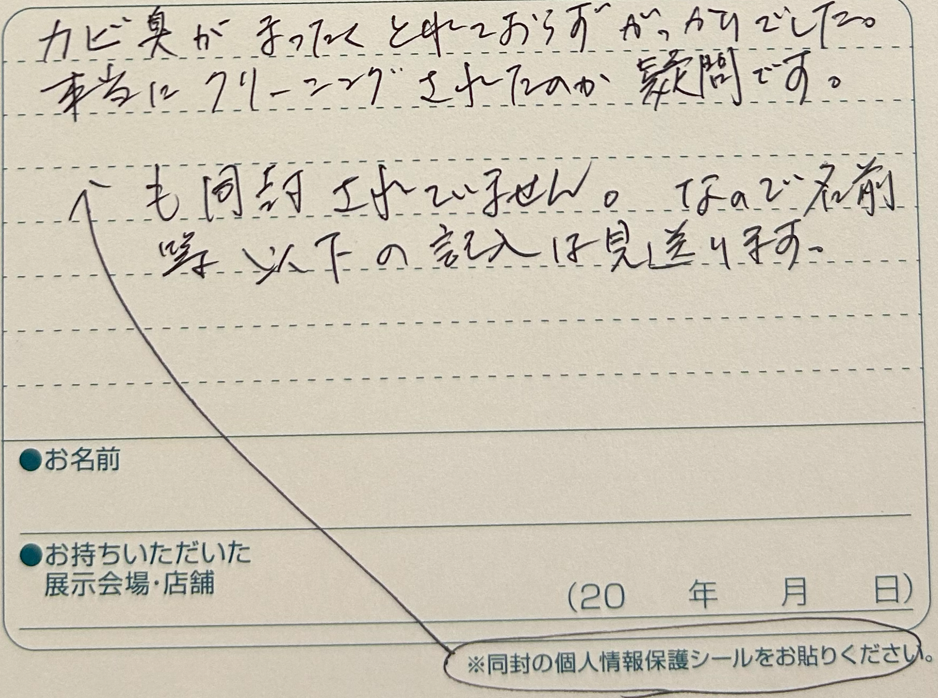 カビ臭がまったくとれておらずがっかりでした。
本当にクリーニングされたのか疑問です。
も同封されていません。なので名前
等以下の記入は見送ります。
●お名前
●お持ちいただいた
展示会場・店舗
(20 年 月 日)
※同封の個人情報保護シールをお貼りください。